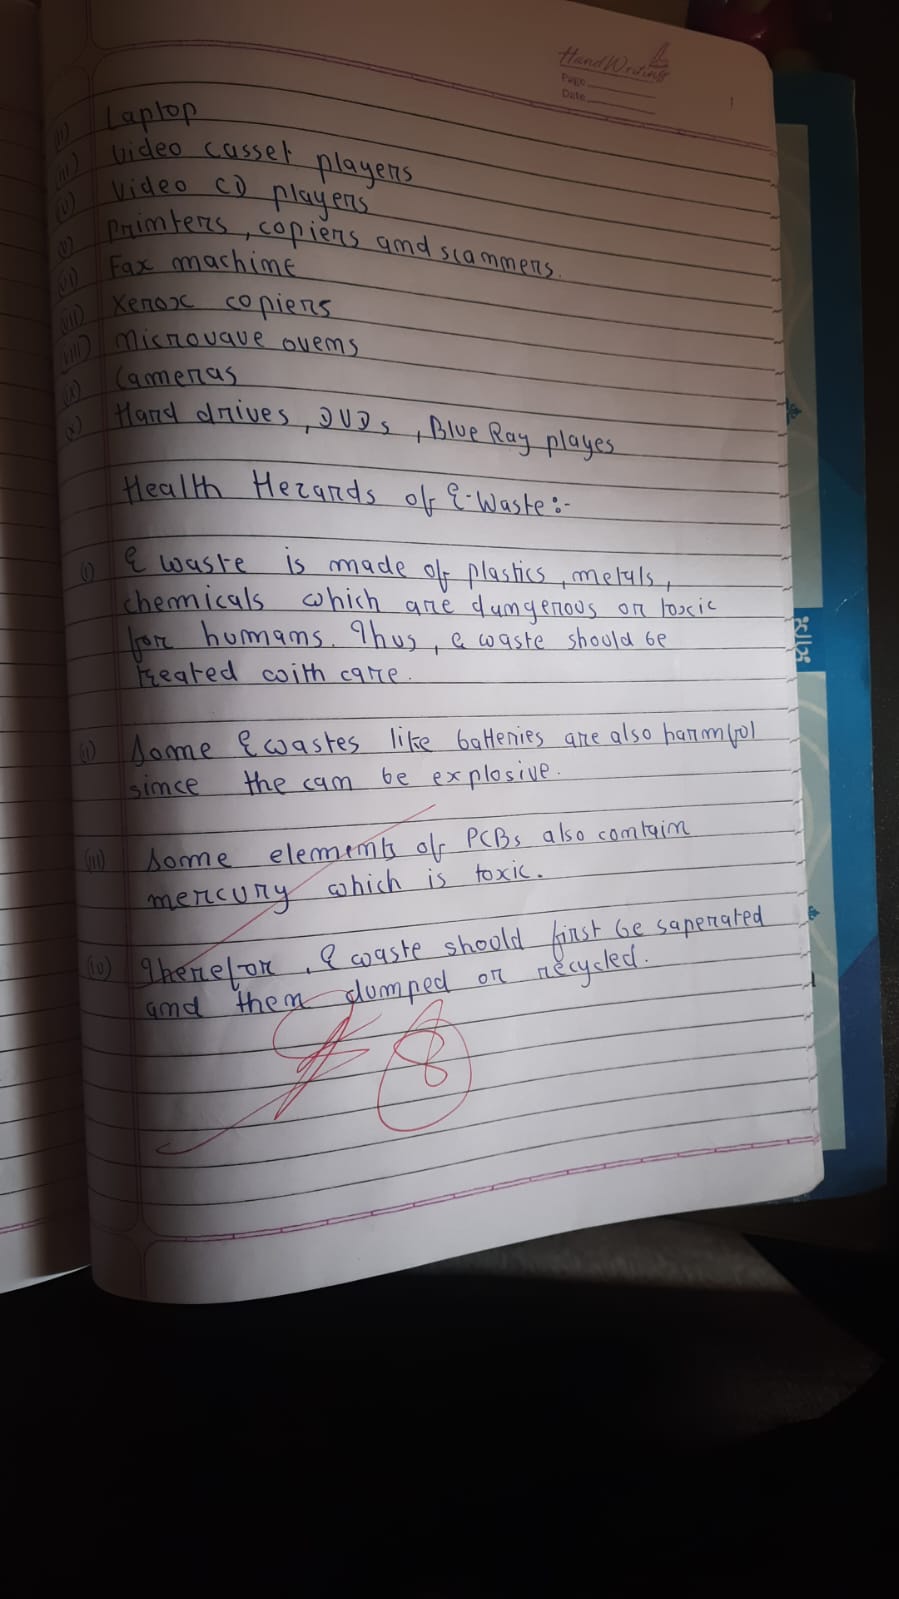 HandWriting
Page
Date
(ii) Laptop
(iii) Video casset players
(iv) Video CD players
(v) Printers, copiers and scanners.
(vi) Fax machine
(vii) Xerox copiers
(viii) Microvave ovens
(ix) Cameras
(x) Hard drives, DVDs, Blue Ray playes
Health Hezards of E-Waste:-
(i) E waste is made of plastics, metals,
chemicals which are dangerous or toxic
for humans. Thus, e waste should be
treated with care.
(ii) Some E wastes like batteries are also harmful
since the can be explosive.
(iii) Some elements of PCBs also contain
mercury which is toxic.
(iv) Therefor, E waste should first be saperated
and then dumped or recycled.
8